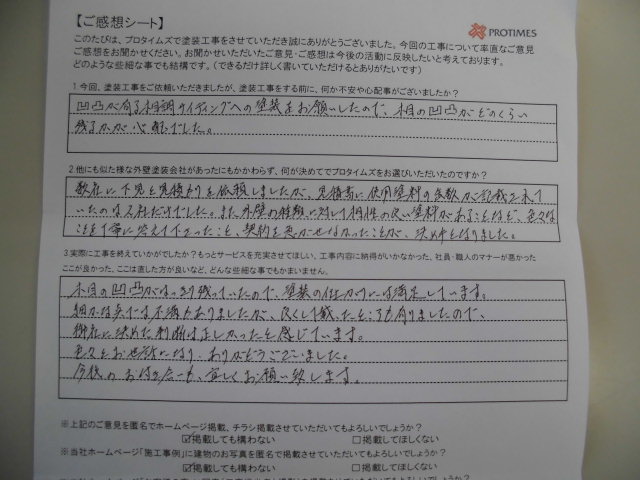 【ご感想シート】
PROTIMES
このたびは、プロタイムズで塗装工事をさせていただき誠にありがとうございました。今回の工事について率直なご意見
ご感想をお聞かせください。お聞かせいただいたご意見・ご感想は今後の活動に反映したいと考えております。
どのような些細な事でも結構です。（できるだけ詳しく書いていただけるとありがたいです）
1.今回、塗装工事をご依頼いただきましたが、塗装工事をする前に、何か不安や心配事がございましたか？
凹凸が有る木目調サイディングへの塗装をお願いしたので、木目の凹凸がどのくらい
残るかが心配でした。
2.他にも似た様な外壁塗装会社があったにもかかわらず、何が決めてでプロタイムズをお選びいただいたのですか？
数社に下見と見積りを依頼しましたが、見積書に使用塗料の缶数が記載されて
いたのは2社だけでした。また、外壁の種類に対して相性の良い塗料があることなど、色々な
ことを丁寧に答えて下さったこと、契約を急かせなかったことが、決め手となりました。
3.実際に工事を終えていかがでしたか？もっとサービスを充実させてほしい、工事内容に納得がいかなかった、社員・職人のマナーが悪かった
ここが良かった、ここは直した方が良いなど、どんな些細な事でもかまいません。
木目の凹凸がはっきり残っていたので、塗装の仕上がりには満足しています。
細かな点では不満もありましたが、良くして戴いたところも有りましたので、
御社に決めた判断は正しかったと感じています。
色々とお世話になり、ありがとうございました。
今後のお付き合いも、宜しくお願い致します。
※上記のご意見を匿名でホームページ掲載、チラシ掲載させていただいてもよろしいでしょうか？
☑掲載しても構わない　□掲載してほしくない
※当社ホームページ「施工事例」に建物のお写真を匿名で掲載させていただいてもよろしいでしょうか？
☑掲載しても構わない　□掲載してほしくない